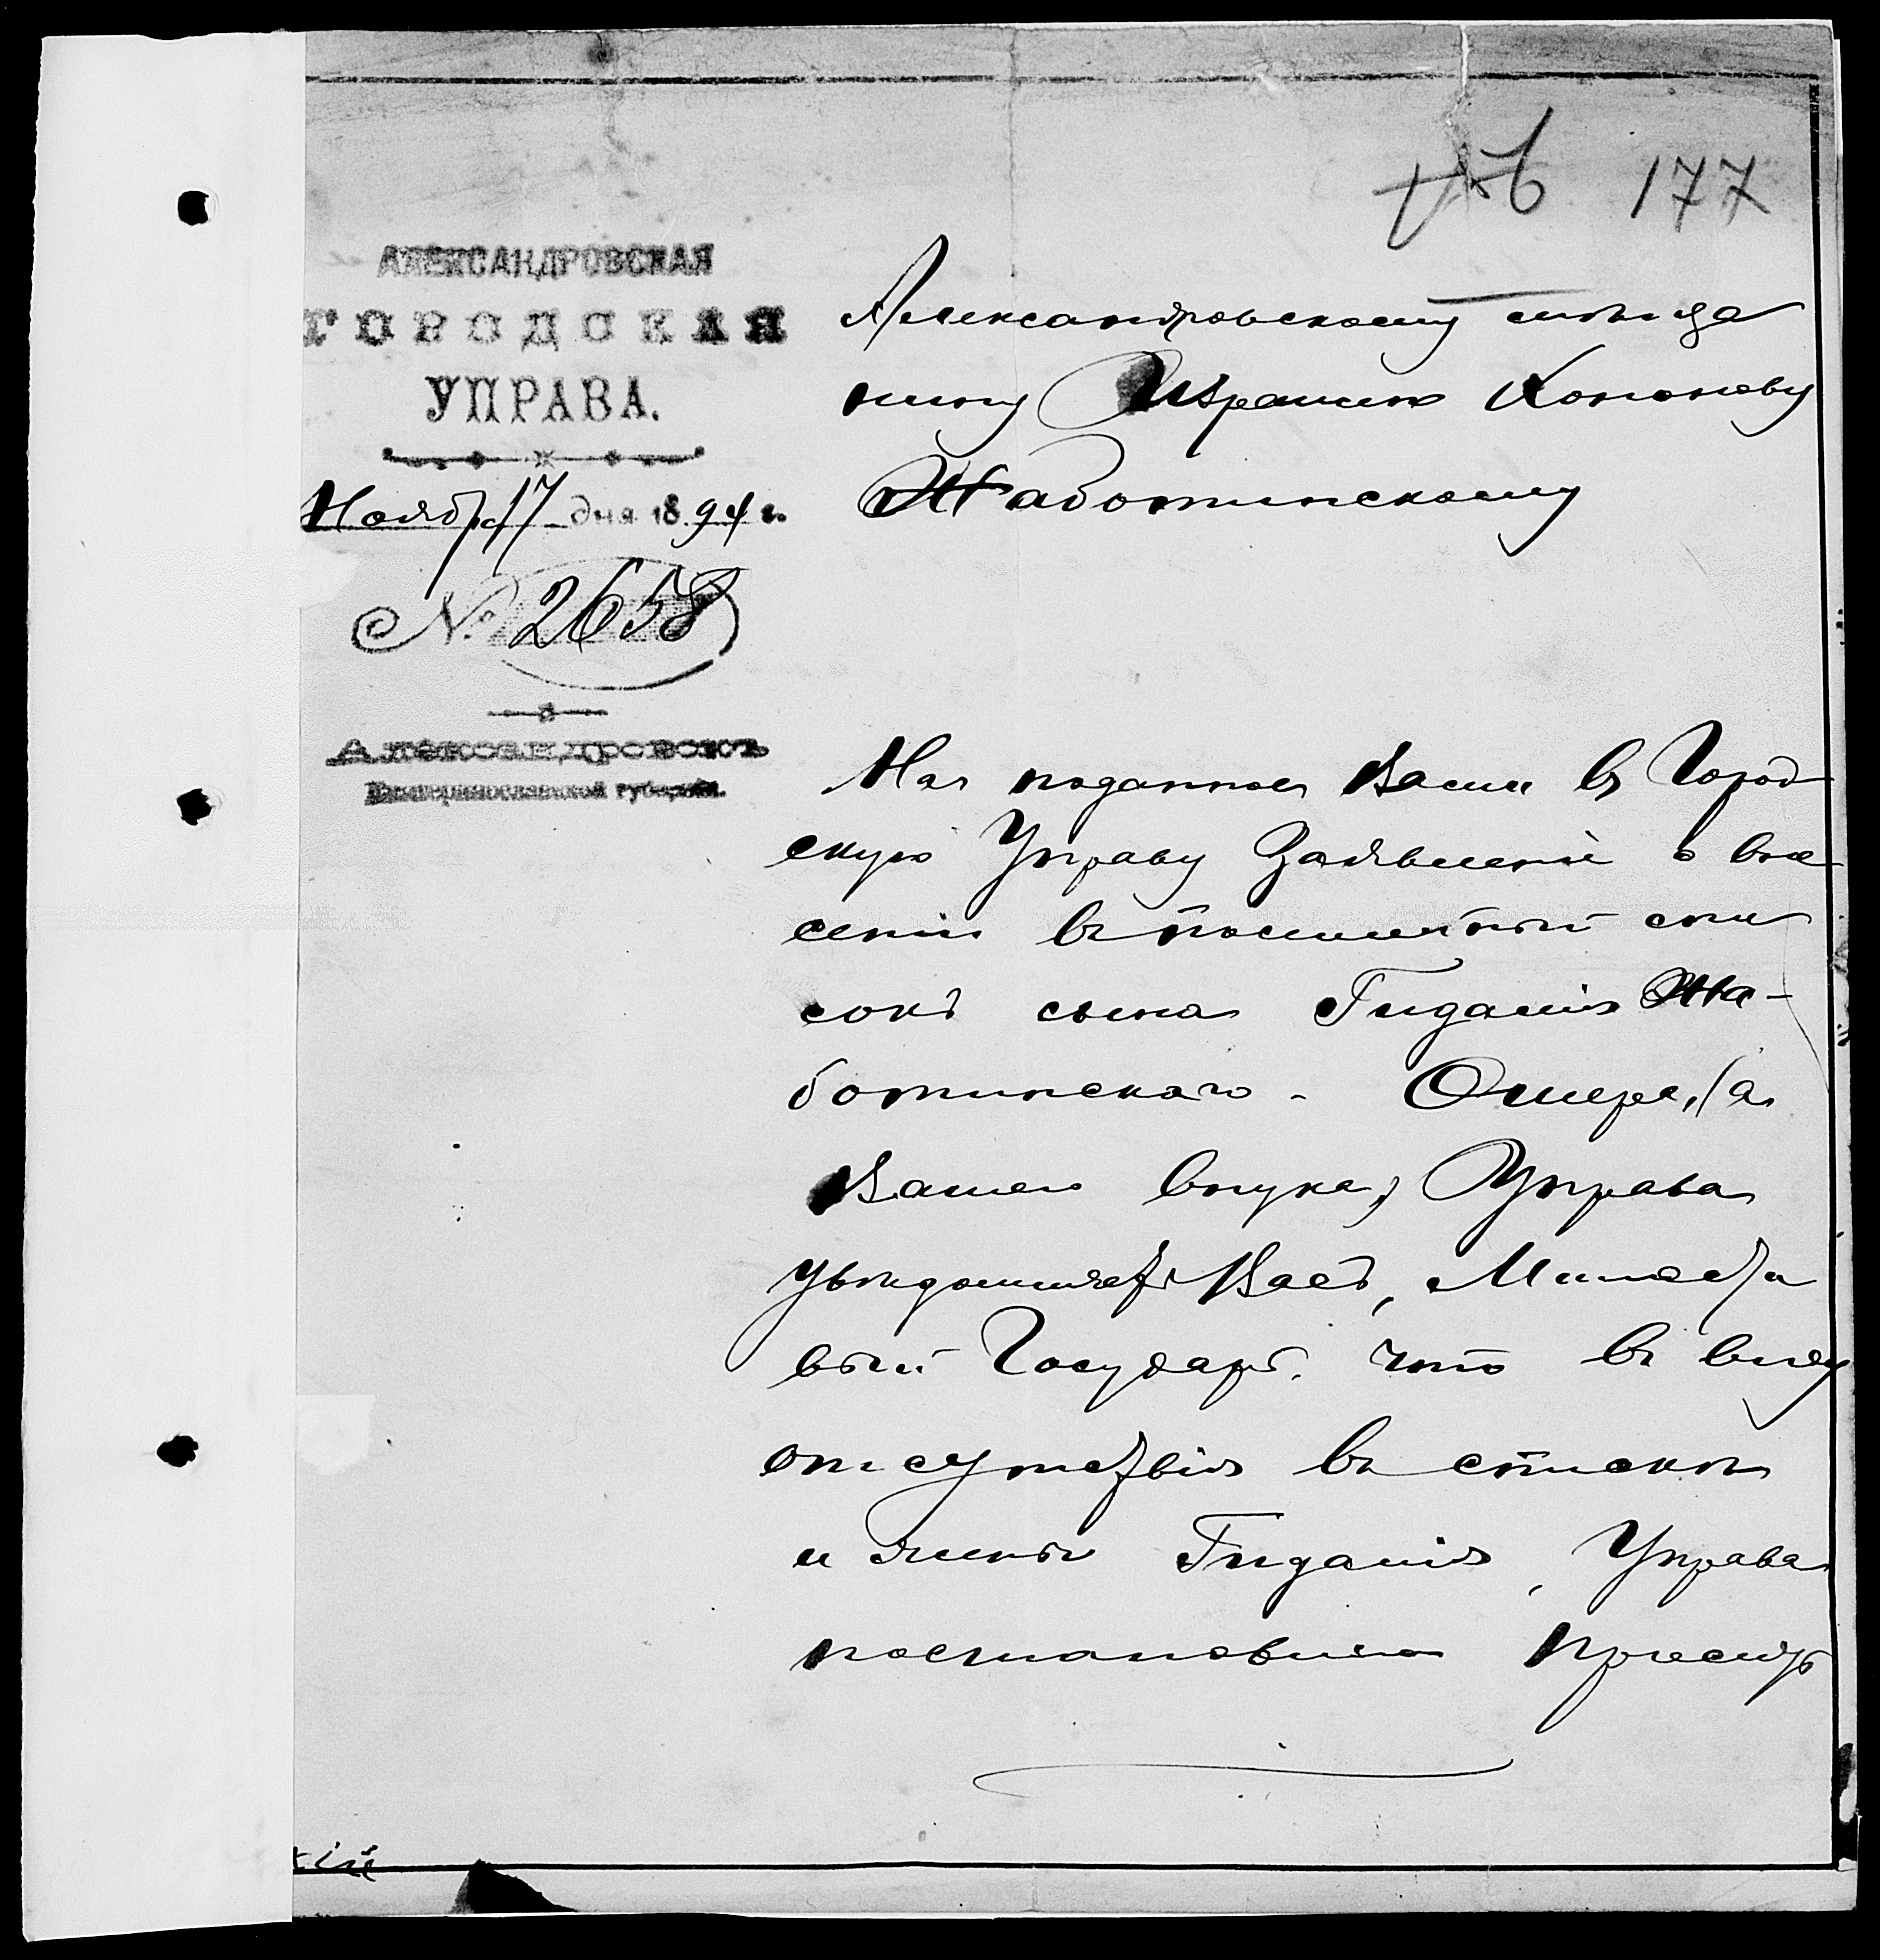 177
АЛЕКСАНДРОВСКАЯ
ГОРОДСКАЯ
УПРАВА.
Ноября 17 дня 1894 г.
№ 2658
Александровскъ
Екатеринославской губерніи.
Александровскому мѣща
нину Израилю Кононову
Жаботинскому
На поданное Вами въ Город
скую Управу Заявленіе о вне
сеніи въ посемейный спи
сокъ сына Гидалія Жа-
ботинскаго - Ошера, (а
Вашего внука) Управа
увѣдомляетъ Васъ, Милости
вый Государь, что въ виду
отсутствія въ спискѣ
и Гидалія, Управа
постановила
кій